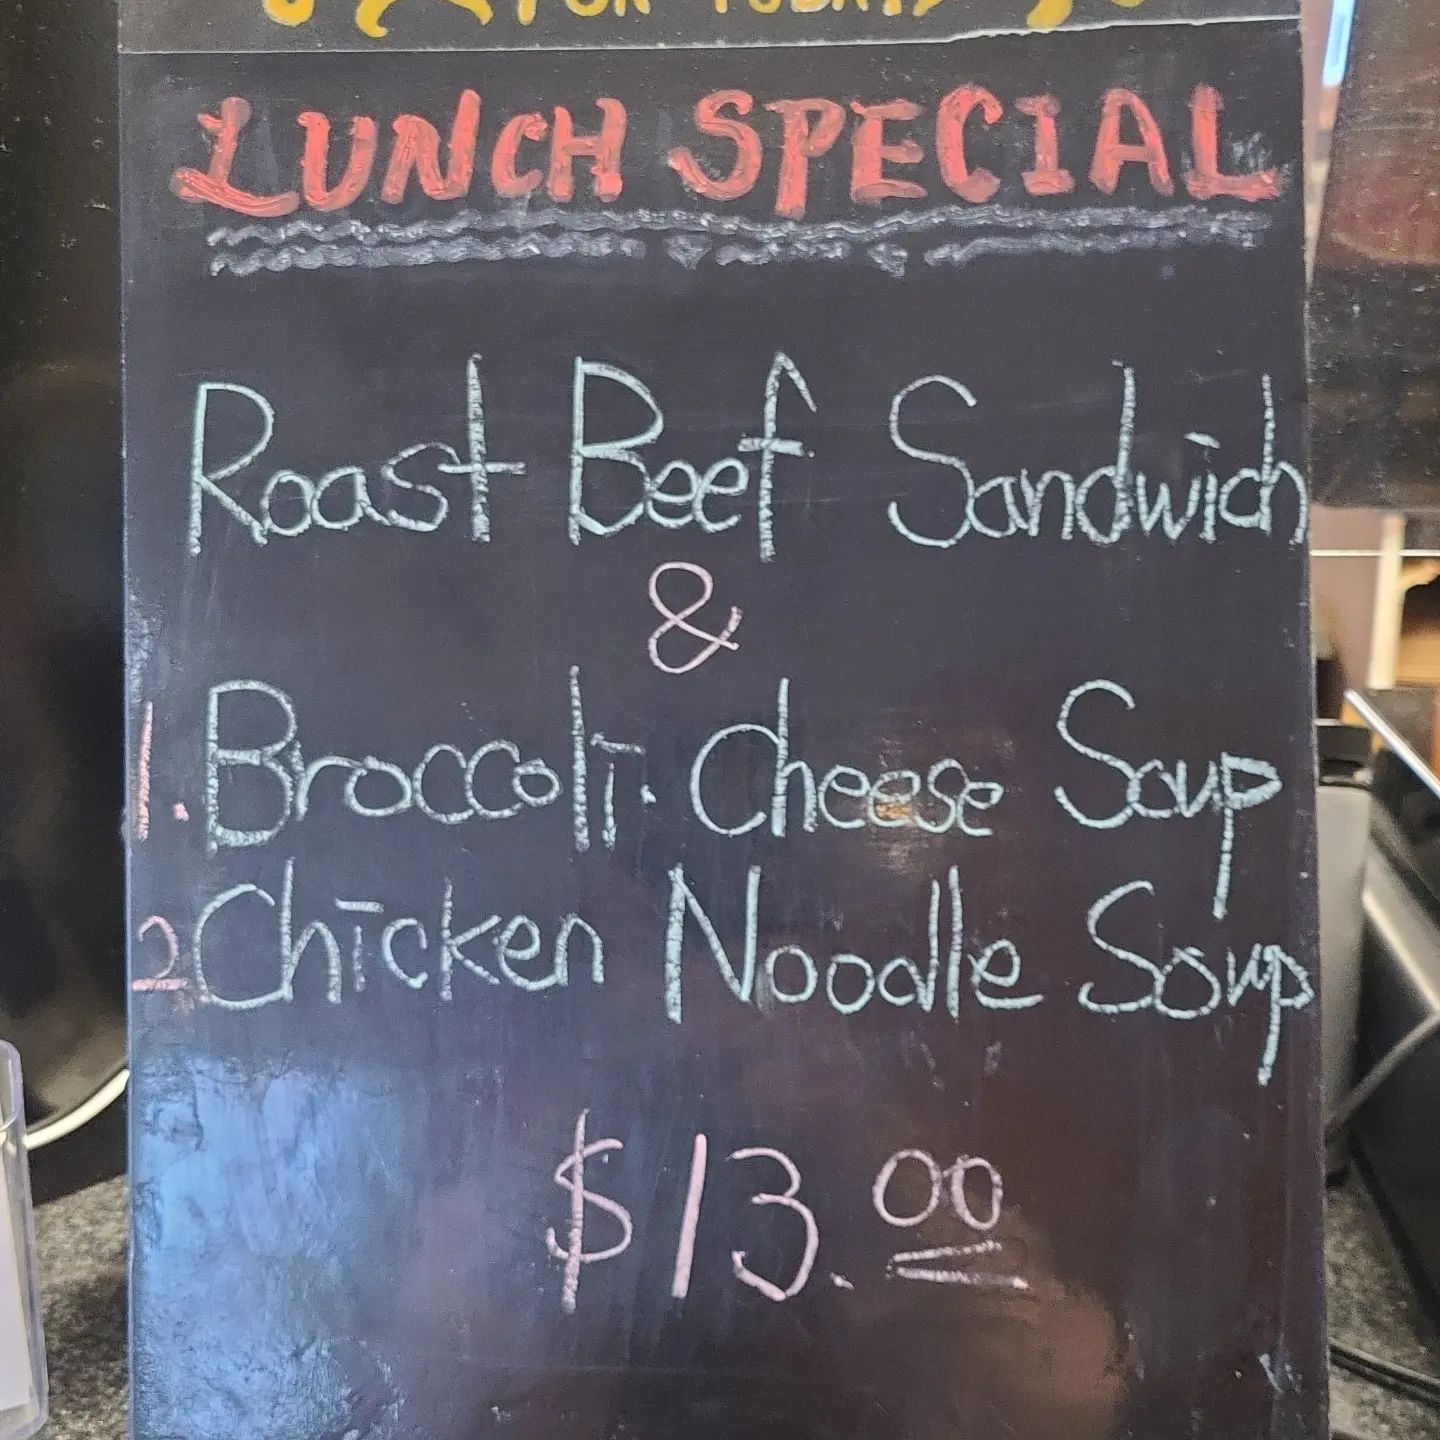 FOR TODAY
LUNCH SPECIAL
Roast Beef Sandwich
&
1. Broccoli. Cheese Soup
2 Chicken Noodle Soup
$13.00